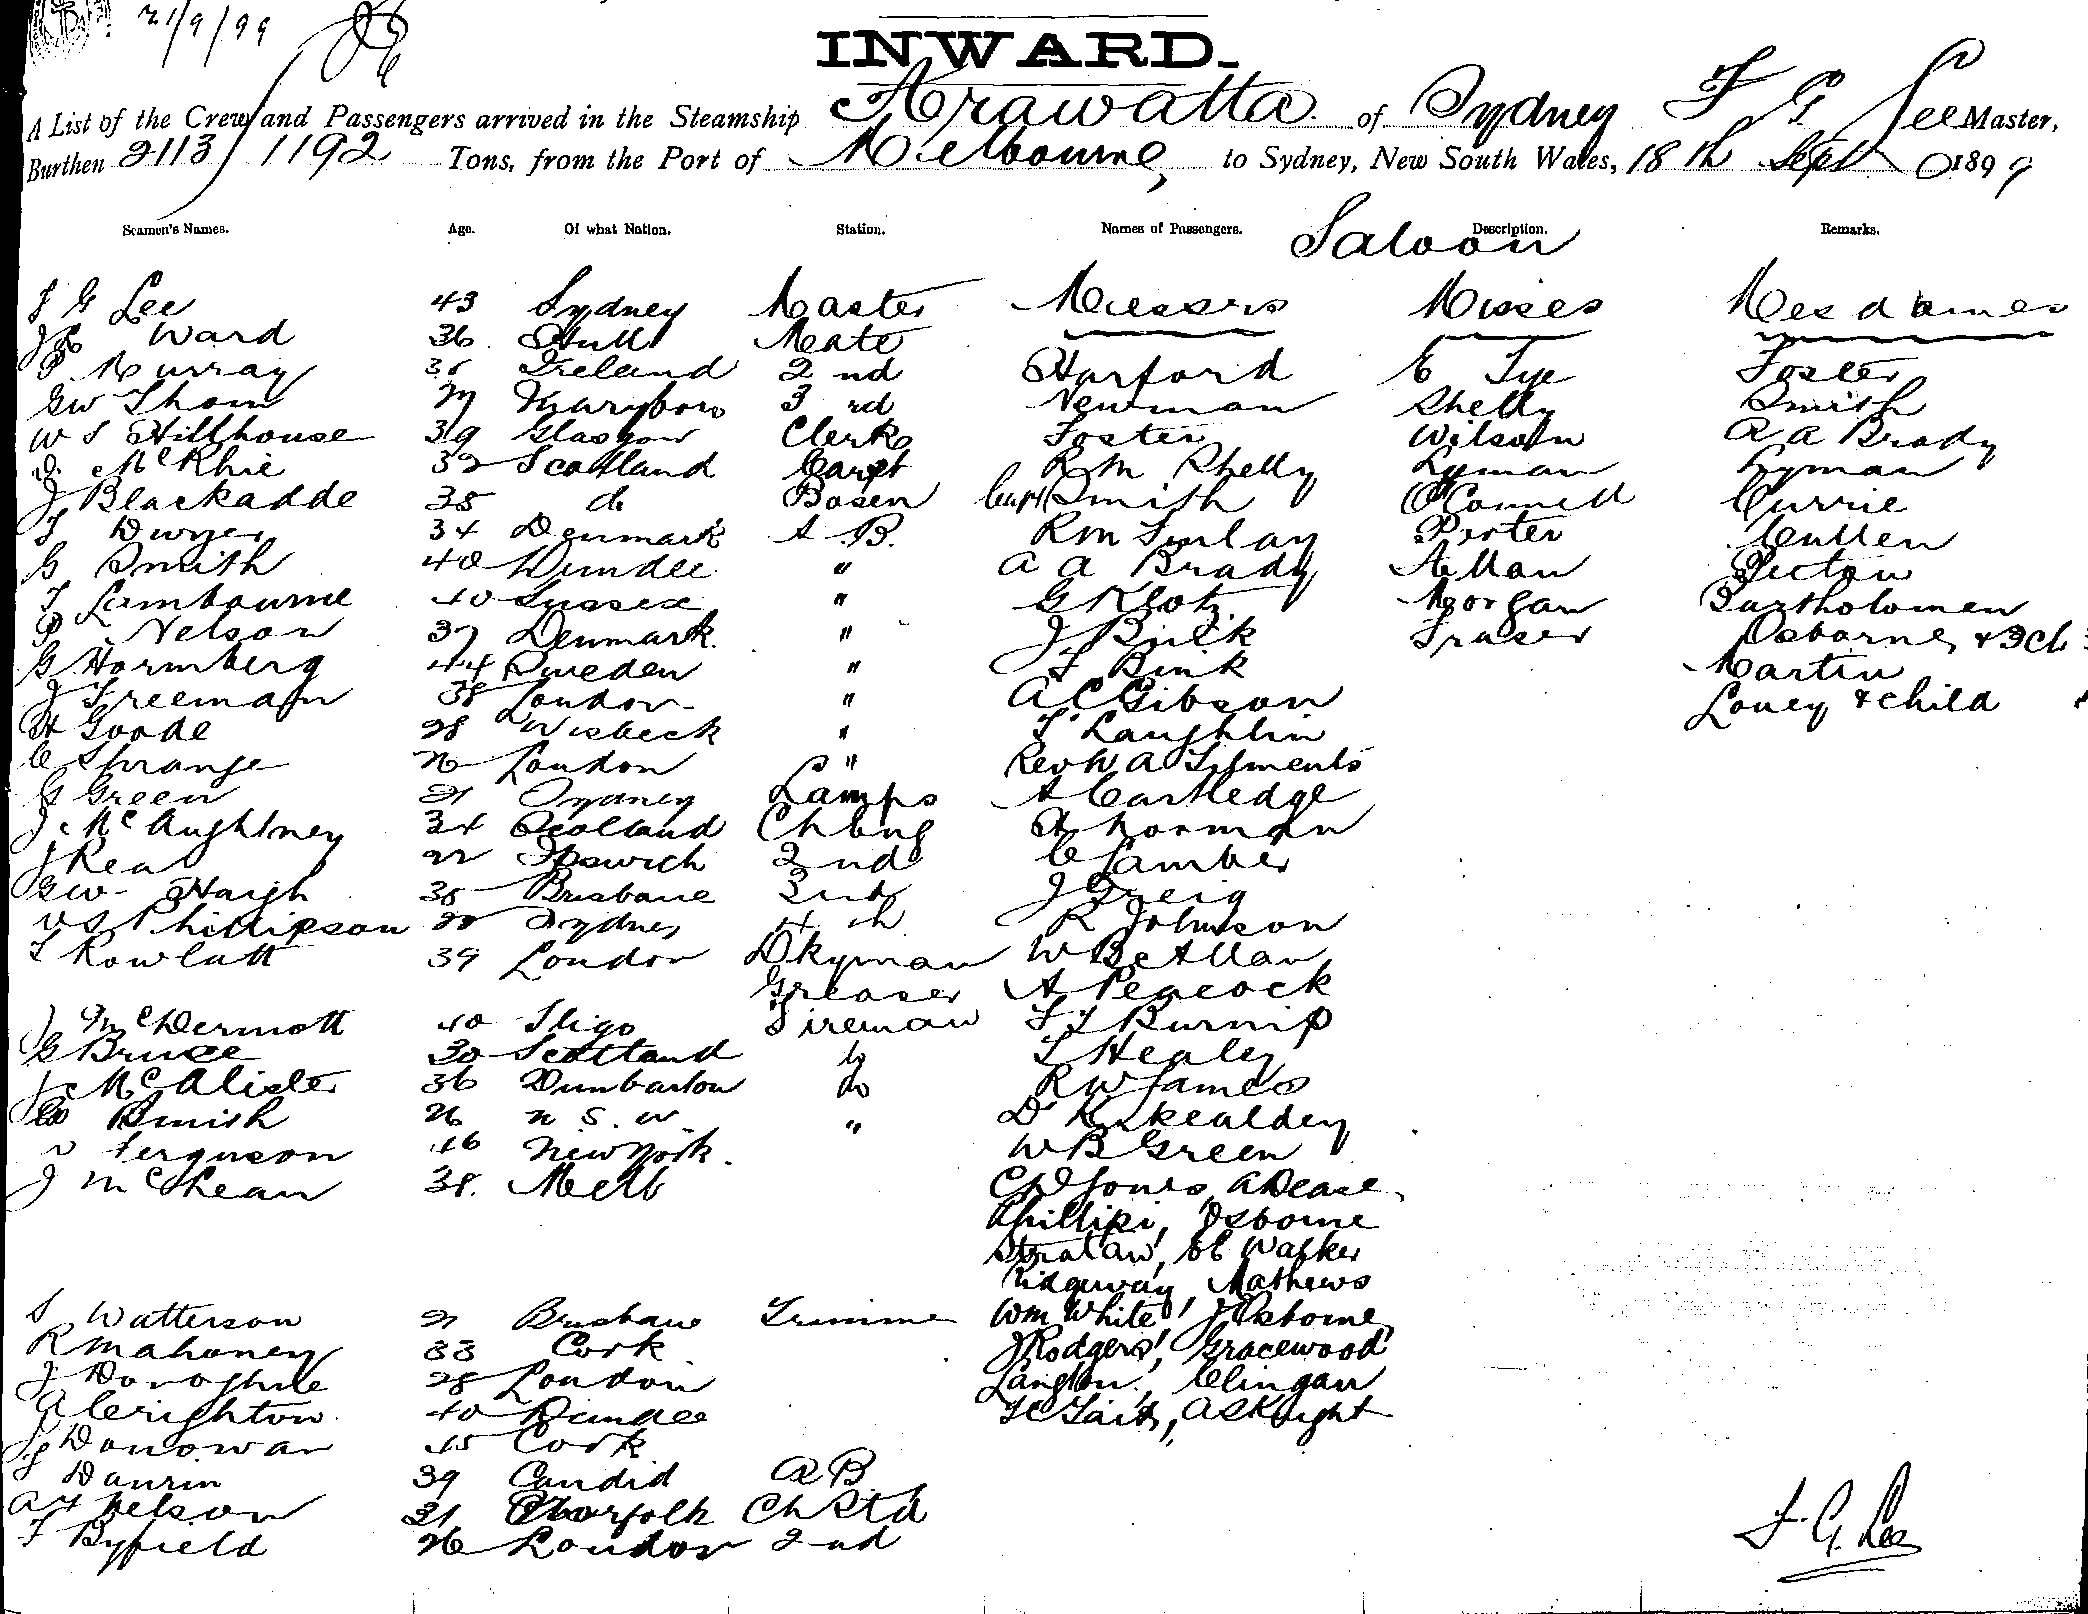 21/9/99
INWARD.
A List of the Crew and Passengers arrived in the Steamship Arawatta of Sydney F G Lee Master,
Burthen 2113/1192 Tons, from the Port of Melbourne, to Sydney, New South Wales, 18th Sept 1899
Seamen's Names. Age. Of what Nation. Station. Names of Passengers. Saloon Description. Remarks.
F G Lee 43 Sydney Master Messrs Misses Mesdames
Ward 36 Hull Mate
P Murray Ireland 2nd Harford E Tye Foster
GW Thom Maryboro 3rd Newman Shelly Smith
W S Hillhouse 39 Glasgow Clerk Foster Wilson A A Brady
McKhie 32 Scotland Carpt R M Shelly Lyman Lyman
J Blackadde 35 do Bosen Capt Smith O'Connell Currie
T Dwyer 34 Denmark A B. R M Finlay Porter Cullen
G Smith 40 Dundee " A A Brady Allan Picton
T Lambourne 40 Sussex " G Klotz Morgan Bartholomew
P Nelson 37 Denmark. " J Brick Fraser Osborne & 3 Ch
G Hormberg 44 Sweden " F Bink Martin
J Freeman 38 London " A C Gibson Loney & child
H Goode 28 Wisbeck " T Laughlin
C Strange 26 London " Rev W A
G Green 21 Sydney Lamps A Cartledge
J McAughtney 34 Scotland Ch Eng H Norman
J Rea 22 Ipswich 2nd C Lamber
GW Haigh 38 Brisbane J Greig
Phillipson Sydney 4th R Johnson
T Rowlatt 39 London Dkyman W B Allan
Greaser A Peacock
J McDermott 40 Sligo Fireman F J Burnip
G Bruce 30 Scotland do T Healey
J McAlister 36 Dumbarton do R W James
Smith 26 N S. W " D Kirkcaldey
Ferguson 46 New York. W B Green
J McLean 38. Melb C W Jones, A Dease,
Phillips, Osborne
Stratan, Walker
Ridgeway, Mathews
S Watterson 21 Brisbane Trimmer Wm White, J Osborne,
R Mahoney 33 Cork J Rodgers, Gracewood
J Donoghue 28 London Langton, Clingan
A Crighton 40 Dundee Tait, A S Knight
J Donowan 45 Cork
Daurin 39 Candid A B
Nelson 31 Norfolk Ch Std
F Byfield 26 London 2nd
F. G. Lee